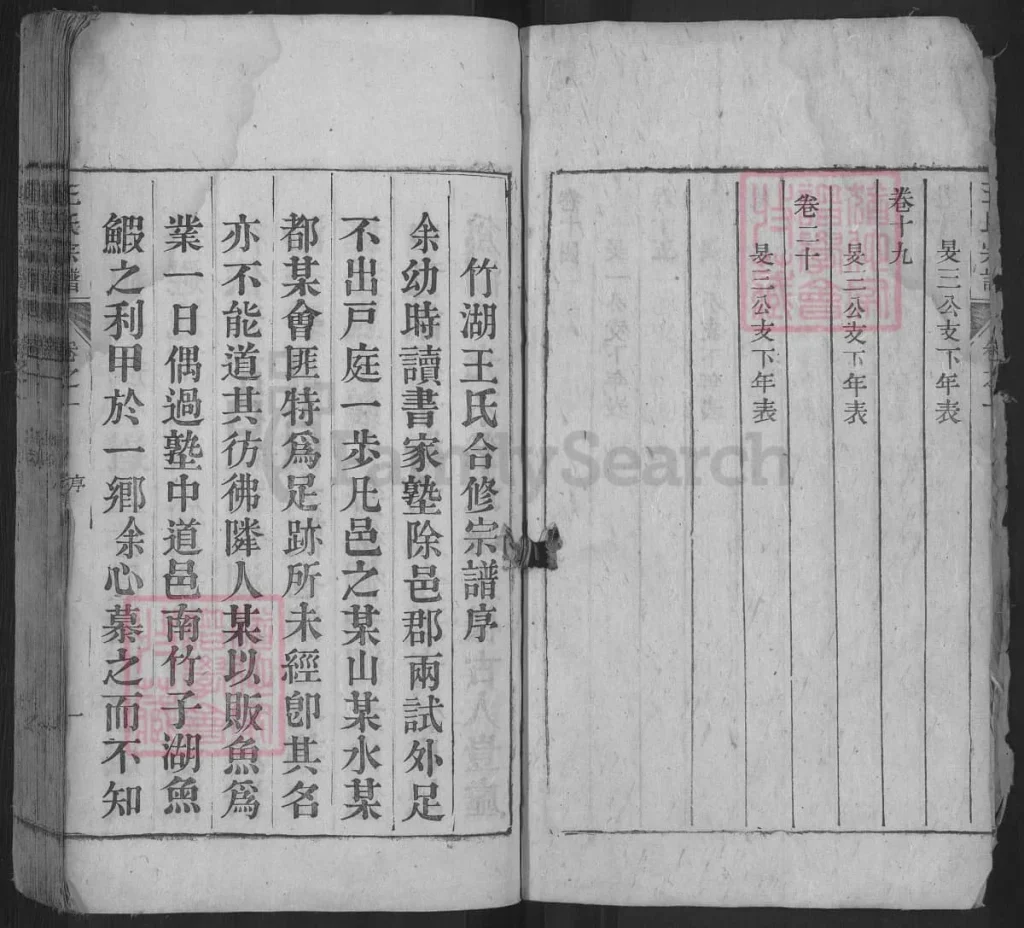 旻三公支下年表
卷十九
旻三公支下年表
卷二十
旻三公支下年表
竹湖王氏合修宗譜序
余幼時讀書家塾除邑郡兩試外足
不出戸庭一步凡邑之某山某水某
都某會匪特爲足跡所未經卽其名
亦不能道其彷彿隣人某以販魚爲
業一日偶過塾中道邑南竹子湖魚
鰕之利甲於一鄉余心慕之而不知
王氏宗譜
卷之一
序
一
FamilySearch